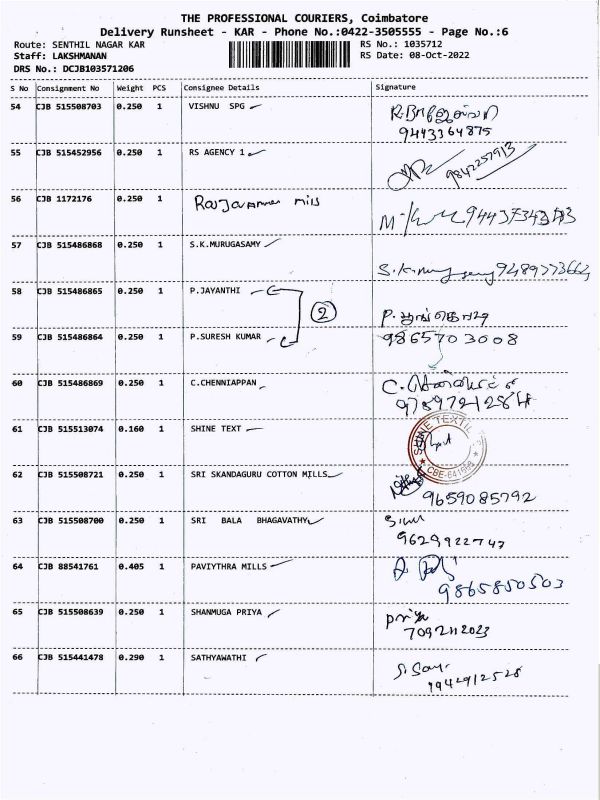 THE PROFESSIONAL COURIERS, Coimbatore
Delivery Runsheet - KAR - Phone No.:0422-3505555 - Page No.:6
Route: SENTHIL NAGAR KAR RS No.: 1035712
Staff: LAKSHMANAN RS Date: 08-Oct-2022
DRS No.: DCJB103571206
S No Consignment No Weight PCS Consignee Details Signature
54 CJB 515508703 0.250 1 VISHNU SPG
9443364875
55 CJB 515452956 0.250 1 RS AGENCY 1
9842257913
56 CJB 1172176 0.250 1 mils
57 CJB 515486868 0.250 1 S.K.MURUGASAMY
58 CJB 515486865 0.250 1 P.JAYANTHI
2
59 CJB 515486864 0.250 1 P.SURESH KUMAR 9865703008
60 CJB 515486869 0.250 1 C.CHENNIAPPAN
61 CJB 515513074 0.160 1 SHINE TEXT
SHINE TEXTIL
62 CJB 515508721 0.250 1 SRI SKANDAGURU COTTON MILLS
9659085792
63 CJB 515508700 0.250 1 SRI BALA BHAGAVATHY
9629922747
64 CJB 88541761 0.405 1 PAVIYTHRA MILLS
9865850503
65 CJB 515508639 0.250 1 SHANMUGA PRIYA priya
66 CJB 515441478 0.290 1 SATHYAWATHI